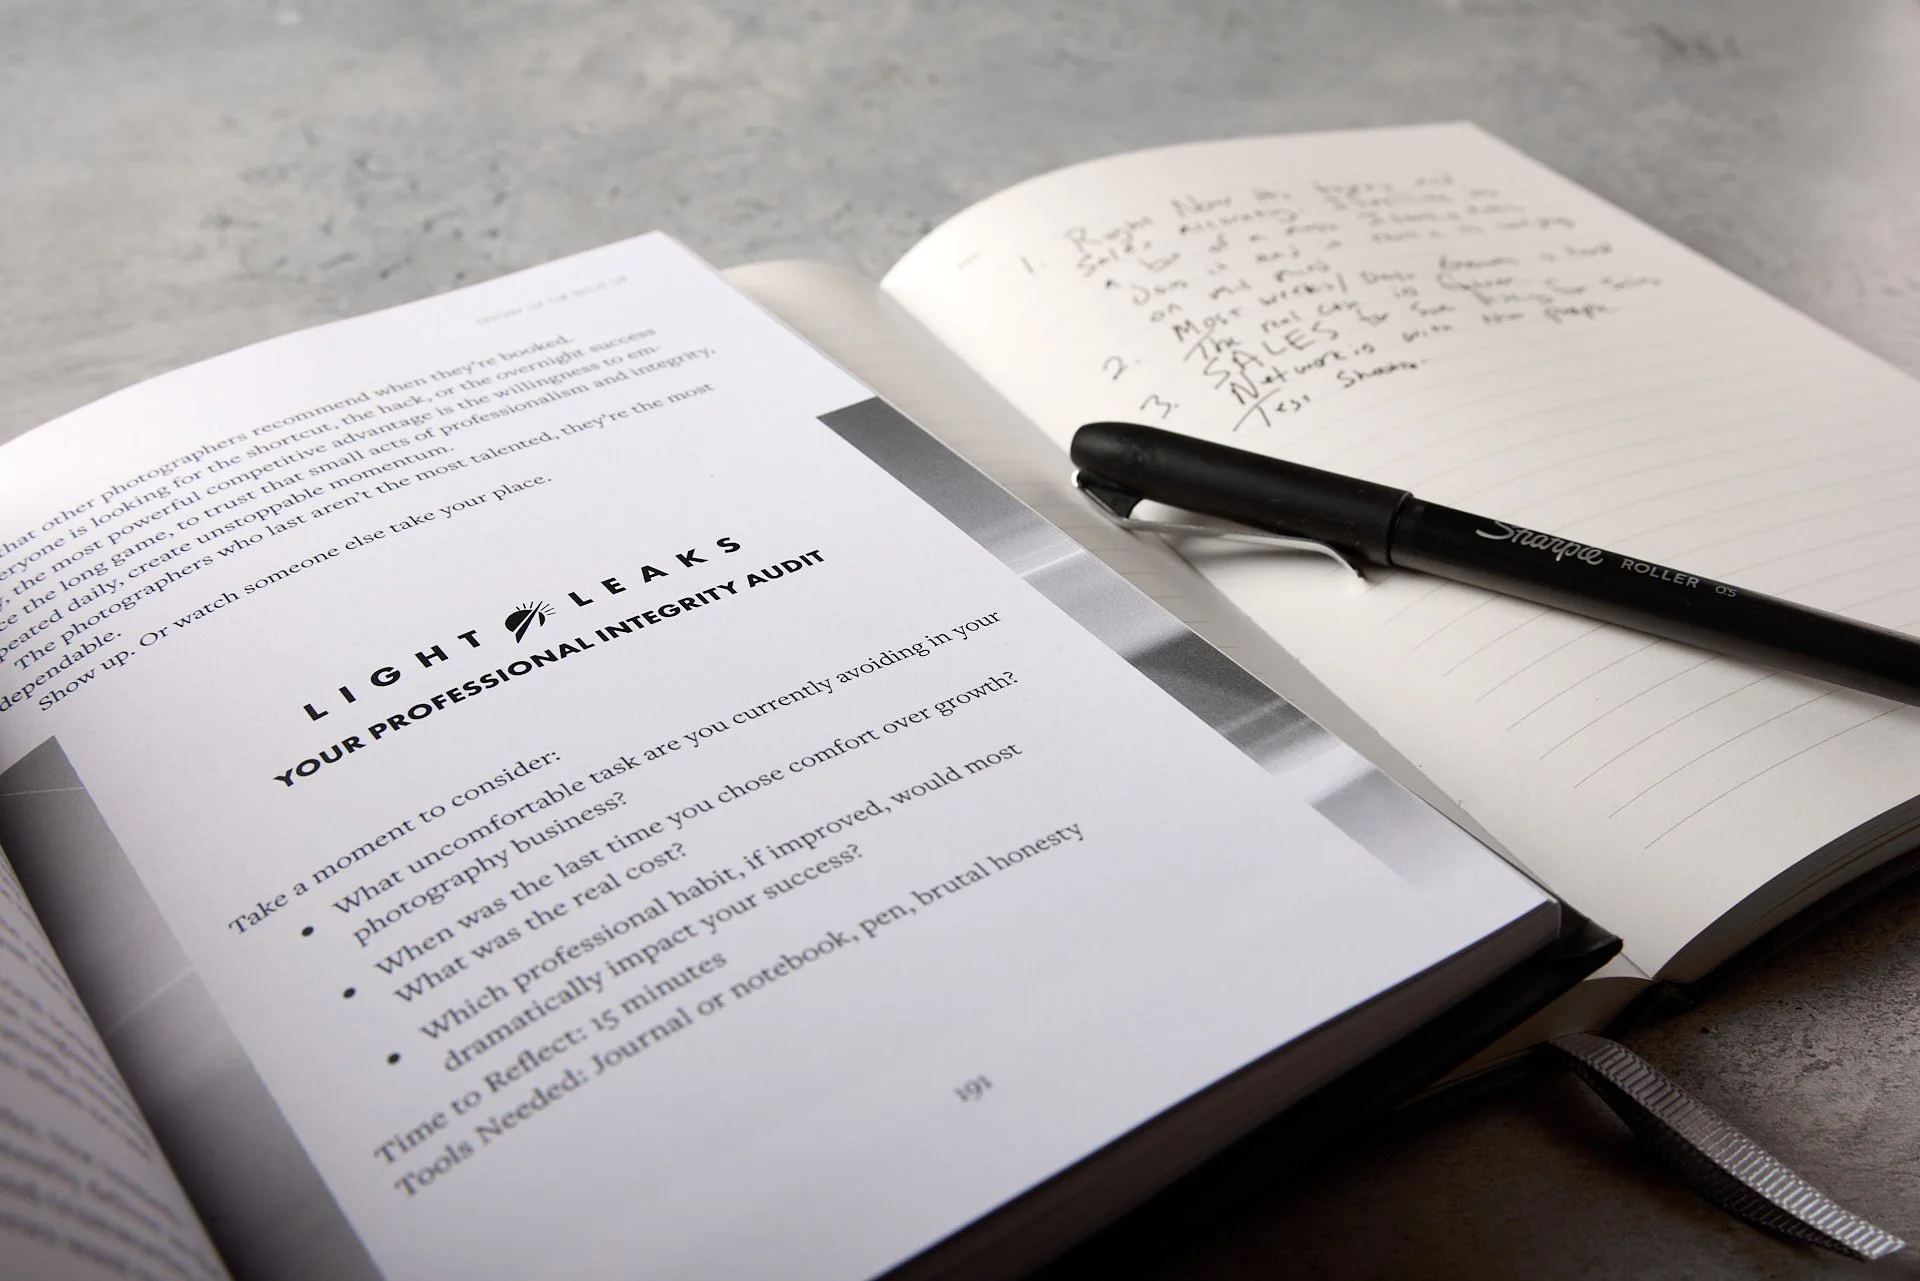 that other photographers recommend when they're booked.
eryone is looking for the shortcut, the hack, or the overnight success
the most powerful competitive advantage is the willingness to em-
ce the long game, to trust that small acts of professionalism and integrity,
peated daily, create unstoppable momentum.
The photographers who last aren't the most talented, they're the most
dependable.
Show up. Or watch someone else take your place.
LIGHT LEAKS
YOUR PROFESSIONAL INTEGRITY AUDIT
Take a moment to consider:
• What uncomfortable task are you currently avoiding in your
photography business?
• When was the last time you chose comfort over growth?
What was the real cost?
• Which professional habit, if improved, would most
dramatically impact your success?
Time to Reflect: 15 minutes
Tools Needed: Journal or notebook, pen, brutal honesty
191
1. Right Now
on my mind
Most weeks/
2. The real cost is
SALES for
3. Networking with new people
Test Shoots.
Sharpie ROLLER 0.5